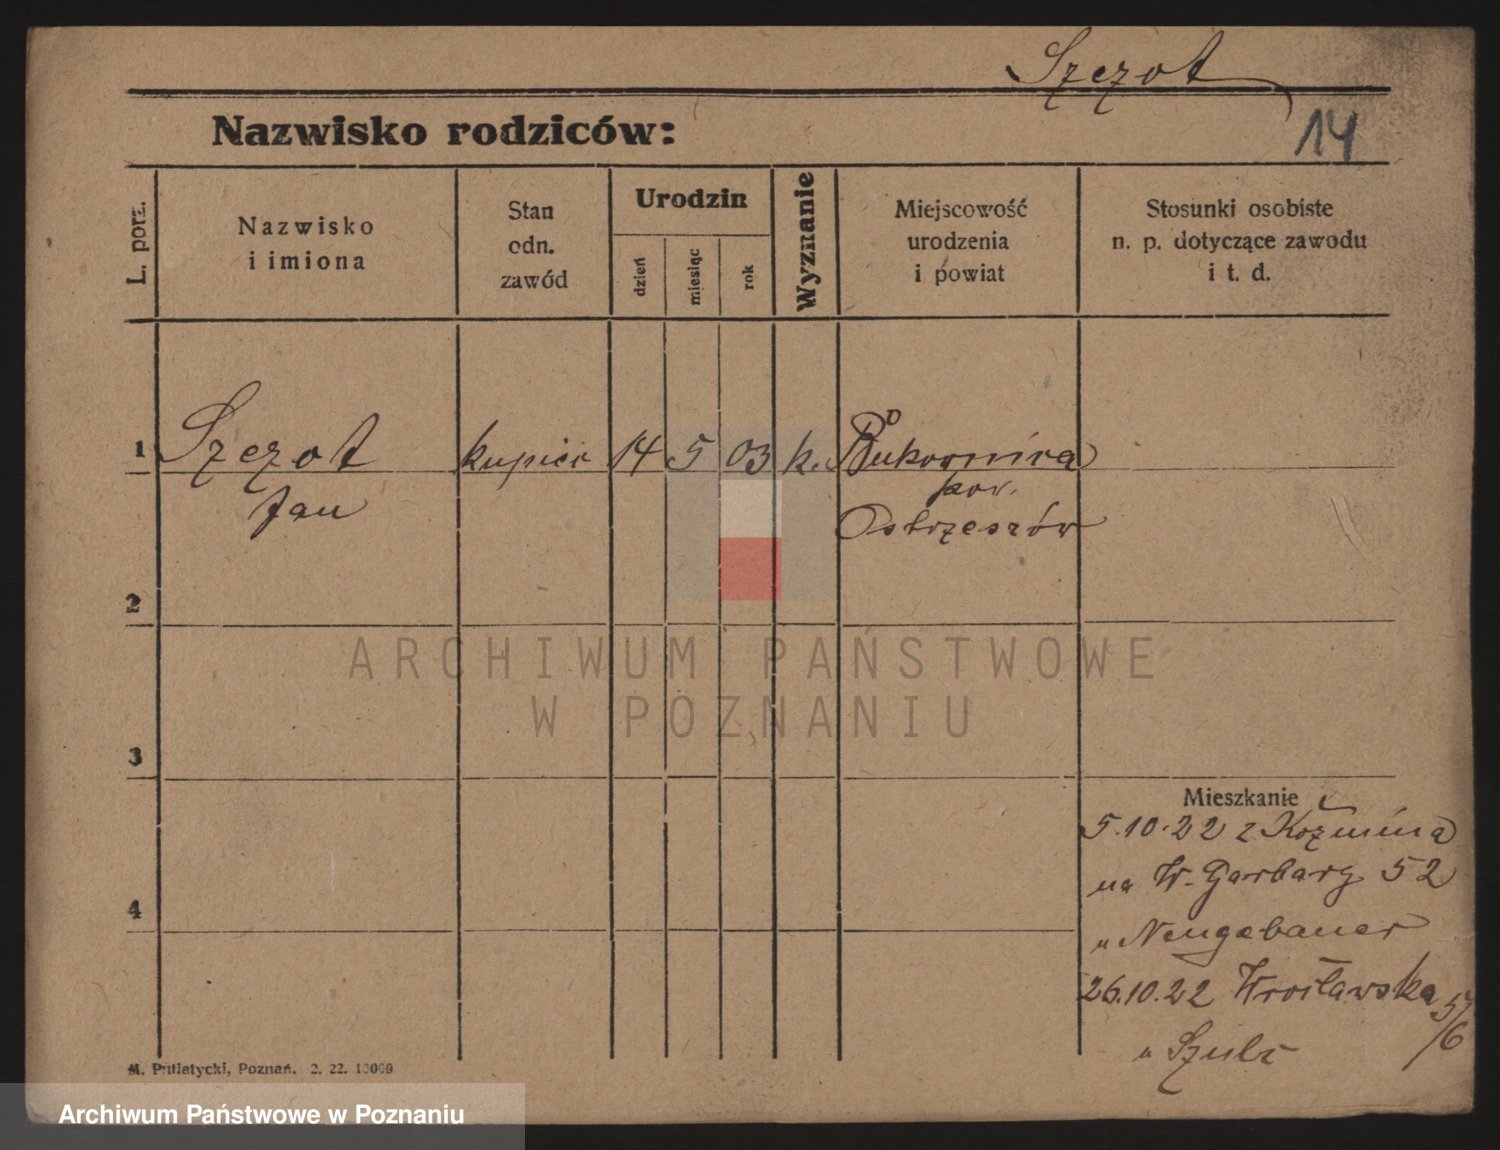 Szczot
14
Nazwisko rodziców:
L. porz.
Nazwisko
i imiona
Stan
odn.
zawód
Urodzin
dzień
miesiąc
rok
Wyznanie
Miejscowość
urodzenia
i powiat
Stosunki osobiste
n. p. dotyczące zawodu
i t. d.
1 Szczot kupiec 14 5 03 k. Bukownica
Jan pow.
Ostrzeszów
2
3
4
Mieszkanie
5.10.22 z Koźmina
na W. Garbary 52
u Neugebauer
26.10.22 Wrocławska 5/6
u Szulc
M. Putiatycki, Poznań. 2. 22. 10000
ARCHIWUM PAŃSTWOWE
W POZNANIU
Archiwum Państwowe w Poznaniu